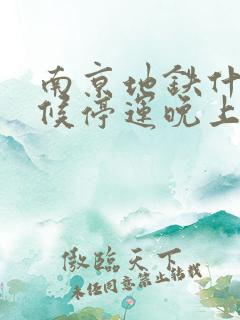 南京地铁什
候停运晚上
傲临天下
未经同意禁止转载